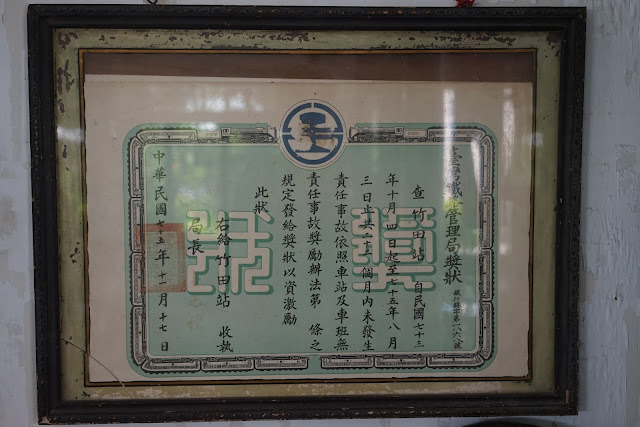 臺灣鐵路管理局獎狀
查竹田站 自民國七十三
年十月四日起至七十五年八月
三日止共二十二個月內未發生
責任事故依照車站及車班無
責任事故獎勵辦法第 條之
規定發給獎狀以資激勵
此狀
右給竹田站 收執
局長
中華民國七十五年十一月十七日